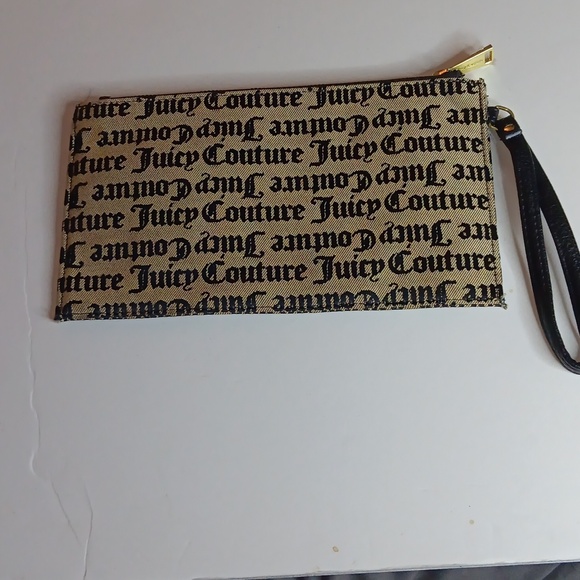 uture Juicy Couture Juicy Couture
re Juicy Couture Juicy Couture
uture Juicy Couture Juicy Couture
re Juicy Couture Juicy Couture
outure Juicy Couture Juicy Couture
re Juicy Couture Juicy Couture
outure Juicy Couture Juicy Couture
re Juicy Couture Juicy Couture